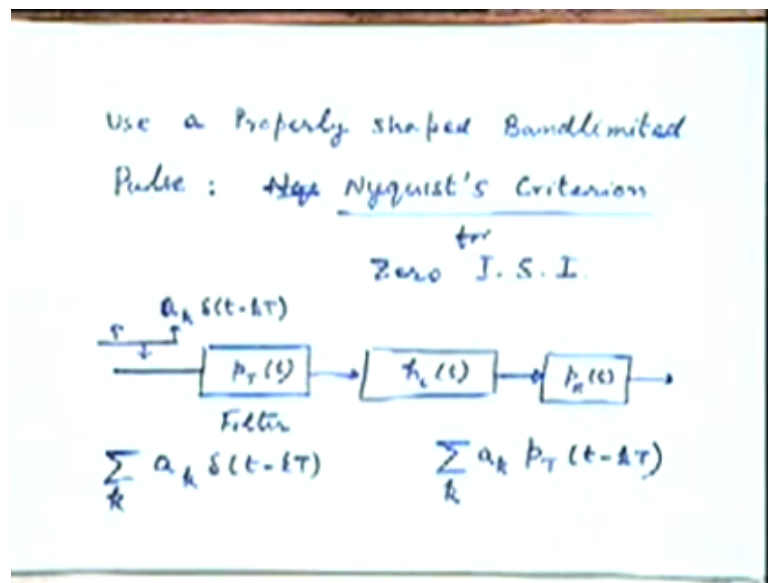 Use a Properly shaped Bandlimited
Pulse : Nyquist's Criterion
for
Zero I.S.I.
a_k δ(t-kT)
p_T(t) h_c(t) p_R(t)
Filter
∑_k a_k δ(t-kT) ∑_k a_k p_T(t-kT)